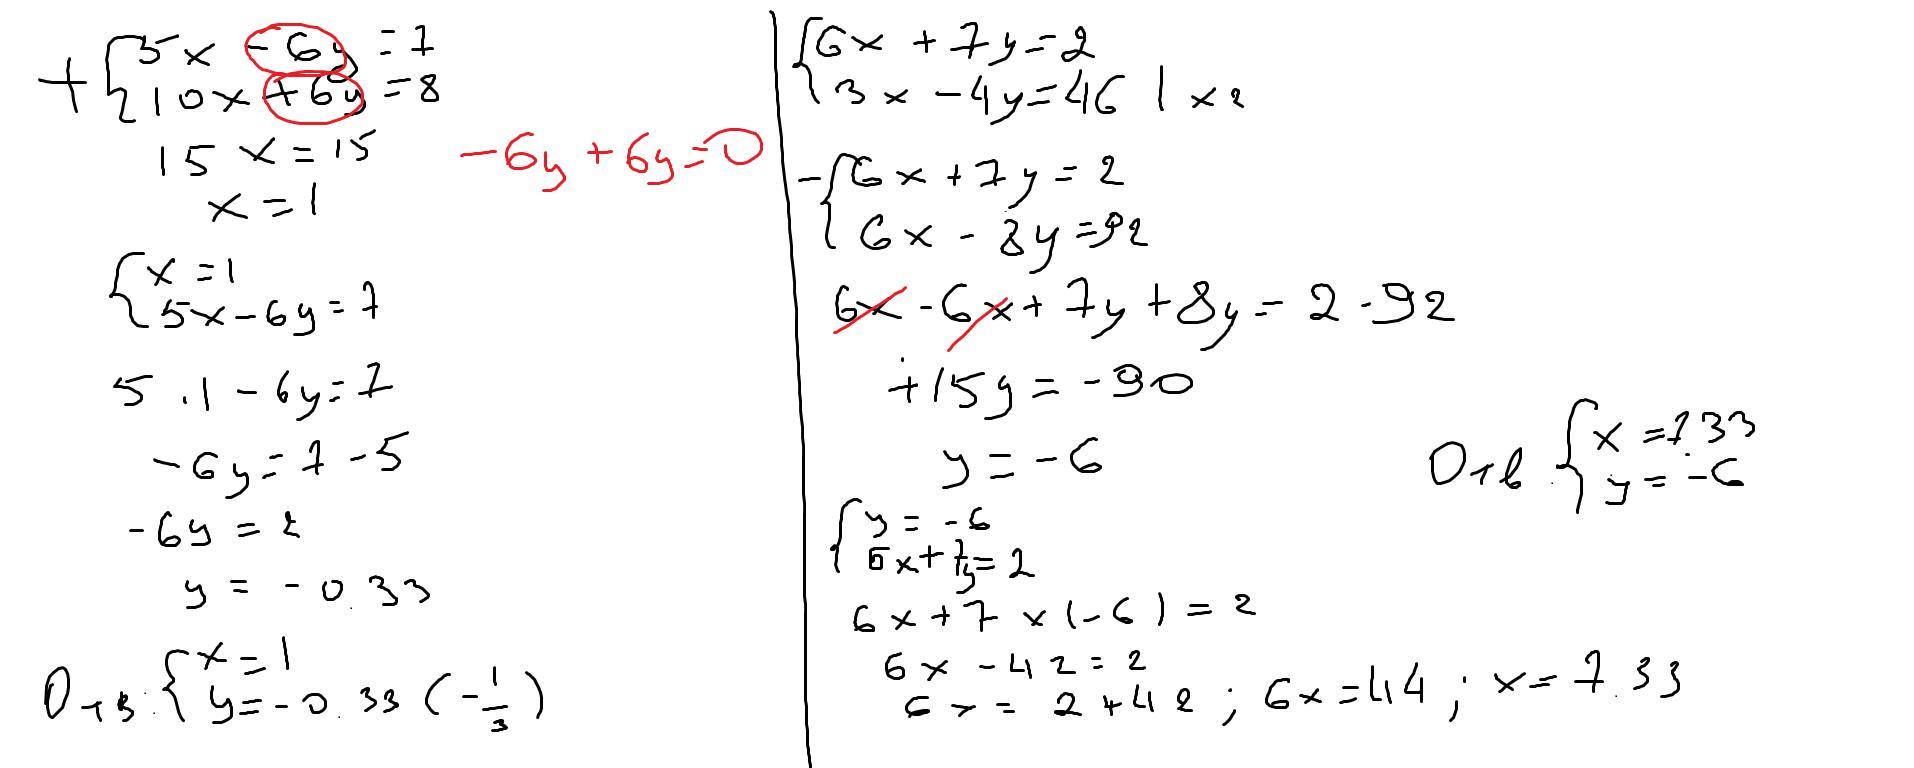 + { 5x - 6y = 7
10x + 6y = 8
15x = 15
-6y + 6y = 0
x = 1
{ x = 1
5x - 6y = 7
5 . 1 - 6y = 7
-6y = 7 - 5
-6y = 2
y = - 0.33
Отв. { x = 1
y = - 0.33 (-1/3)
{ 6x + 7y = 2
3x - 4y = 46 | x 2
- { 6x + 7y = 2
6x - 8y = 92
6x - 6x + 7y + 8y = 2 - 92
+15y = -90
y = -6
{ y = -6
6x + 7y = 2
6x + 7 x (-6) = 2
6x - 42 = 2
6x = 2 + 42 ; 6x = 44 ; x = 7.33
Отв. { x = 7.33
y = -6